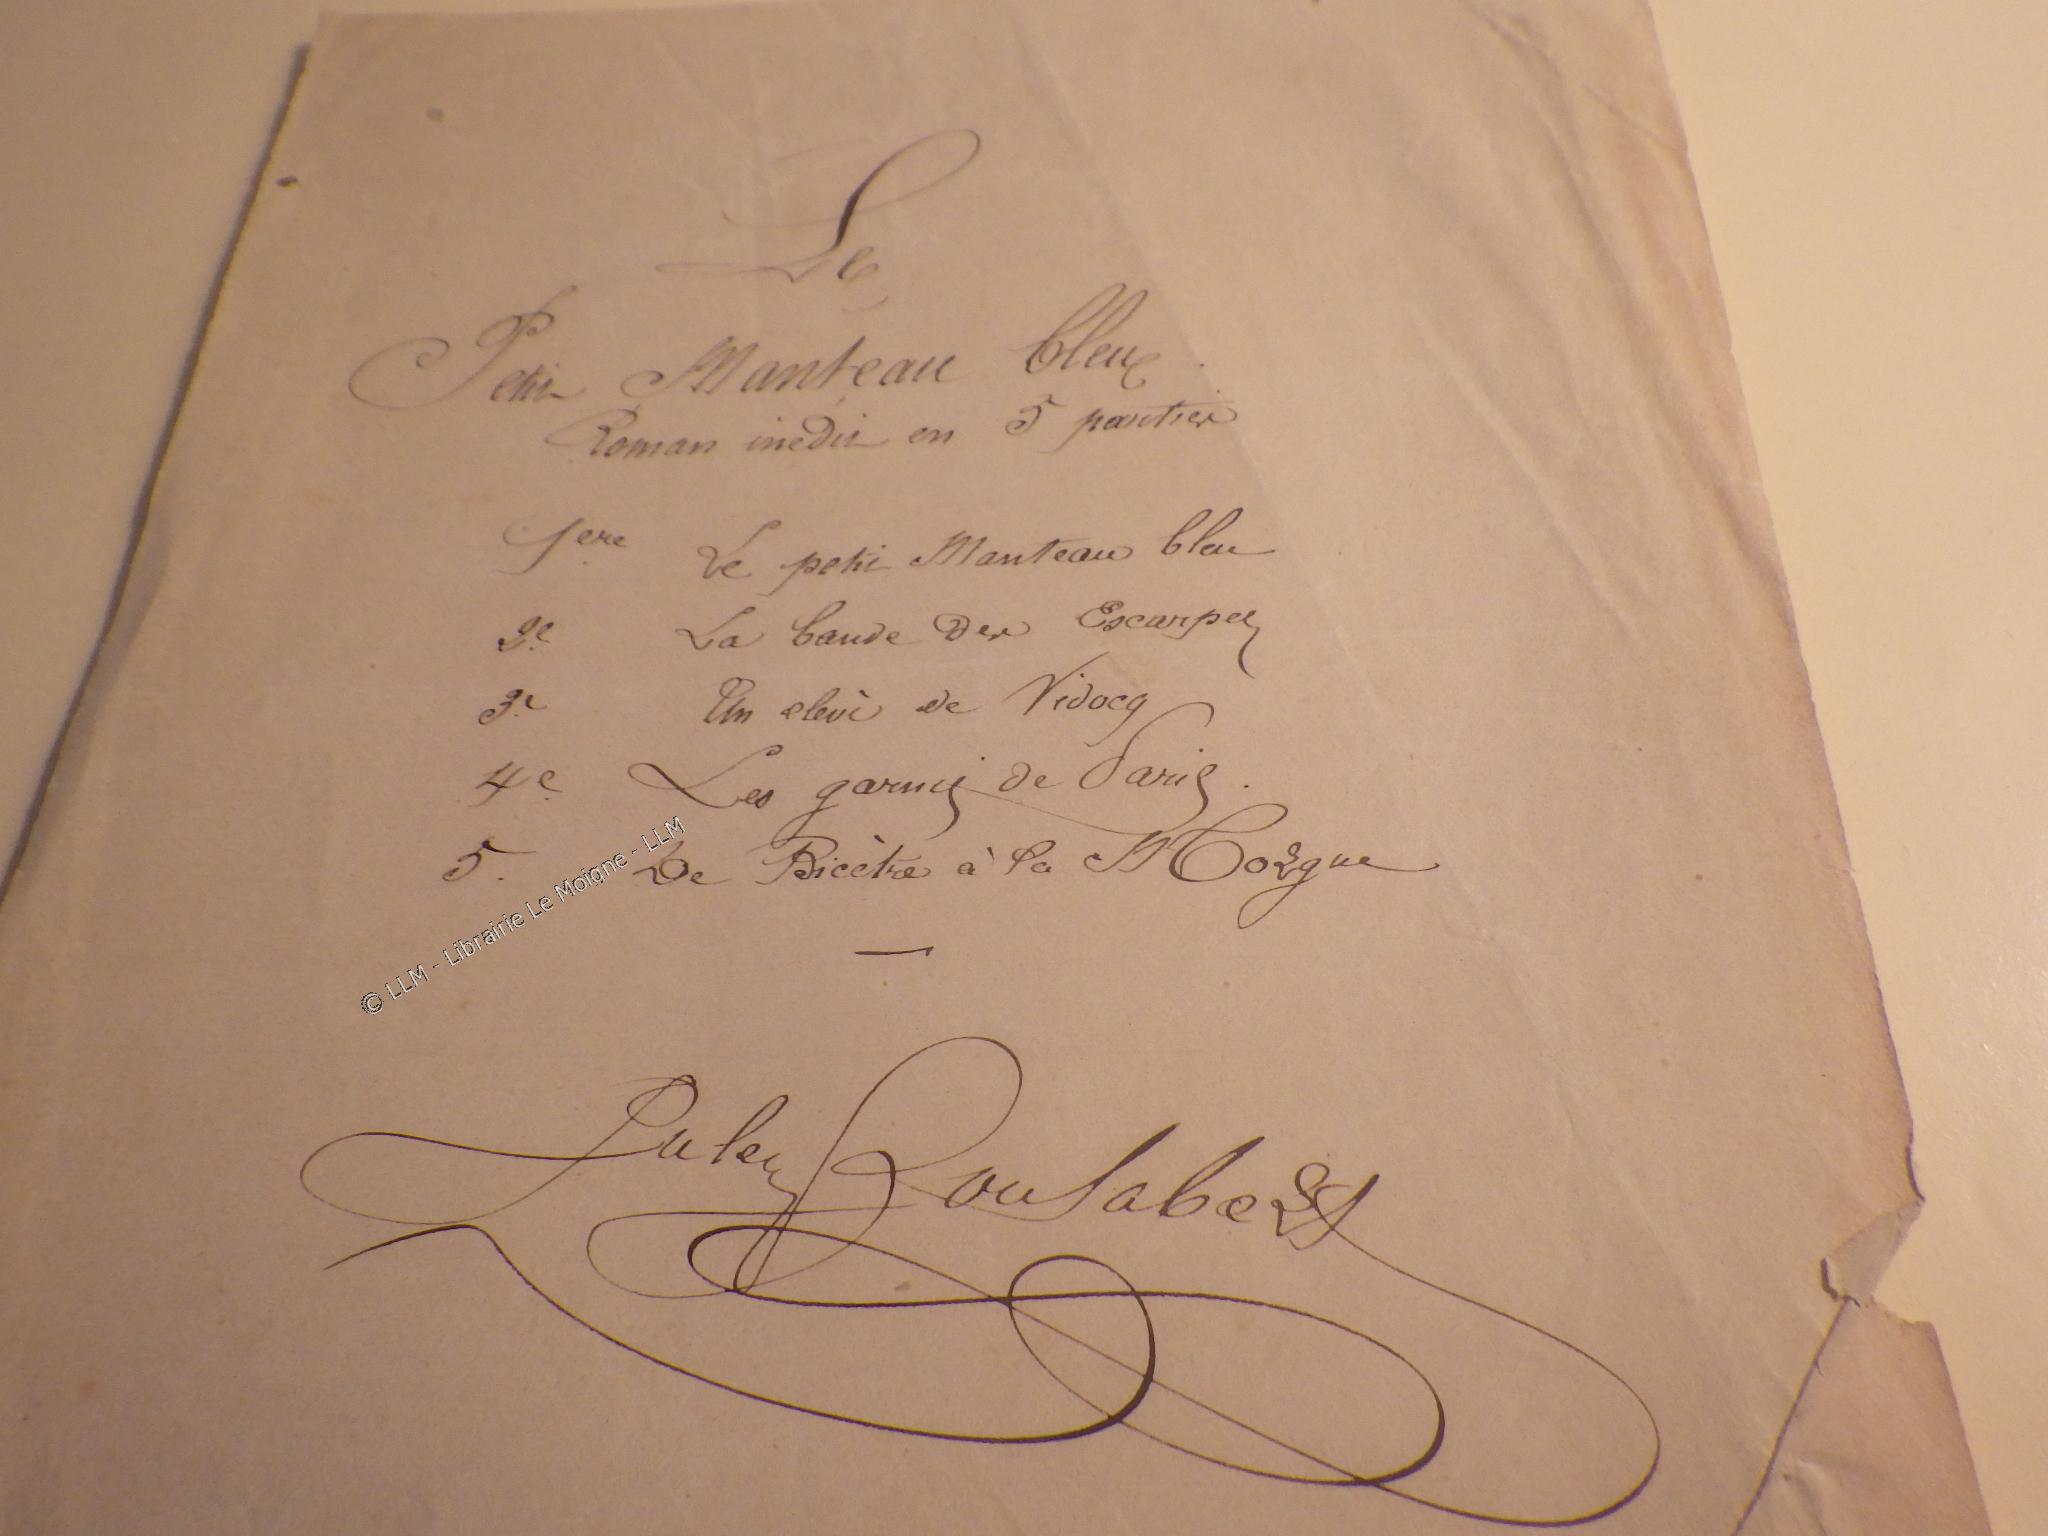 Le
Petit Manteau bleu.
Roman inedit en 5 parties
1ere Le petit Manteau bleu
2e La bande des Escarpes
3e Un elevè de Vidocq
4e Les garnis de Paris.
5. De Bicètre à la Morgue
© LLM - Librairie Le Moigne - LLM
Jules Boulabert